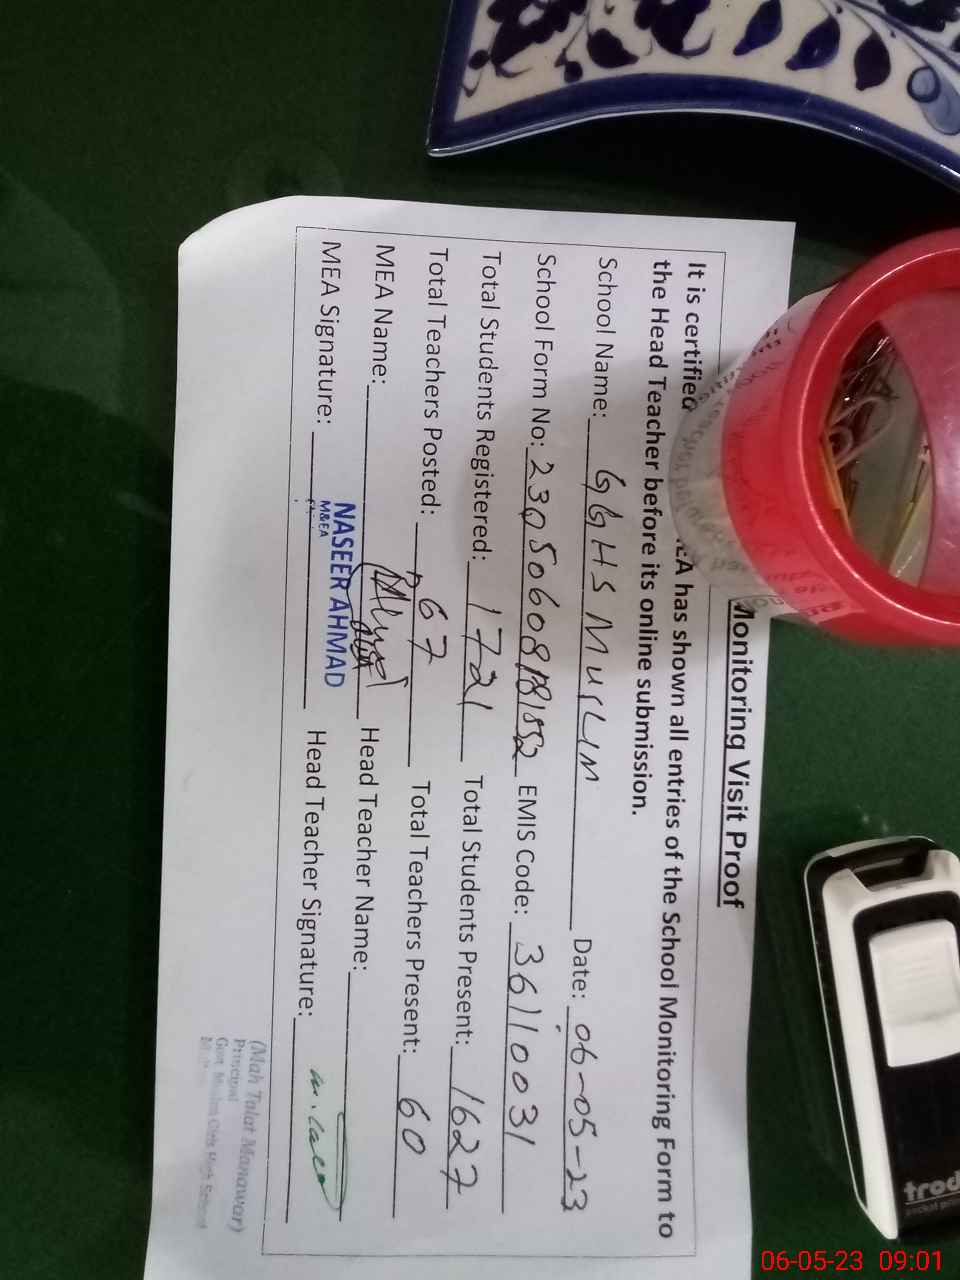 Monitoring Visit Proof
It is certified has shown all entries of the School Monitoring Form to
the Head Teacher before its online submission.
School Name: GGHS MUSLIM Date: 06-05-23
School Form No: EMIS Code: 36110031
Total Students Registered: 1721 Total Students Present: 1627
Total Teachers Posted: 67 Total Teachers Present: 60
MEA Name: Head Teacher Name:
MEA Signature: Head Teacher Signature:
NASEER AHMAD
M&EA
(Mah Talat Manawar)
Principal
Govt. Muslim Girls High School
trod
06-05-23 09:01